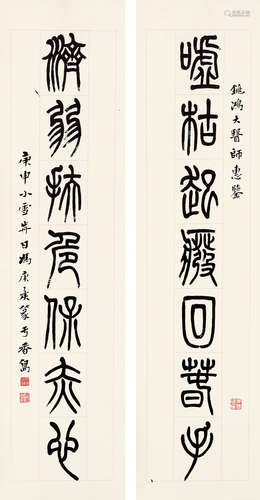 鴻大醫師惠鑒
噓枯起廢回春手
濟弱扶危保赤心
庚申小雪後日馮康侯篆于香島